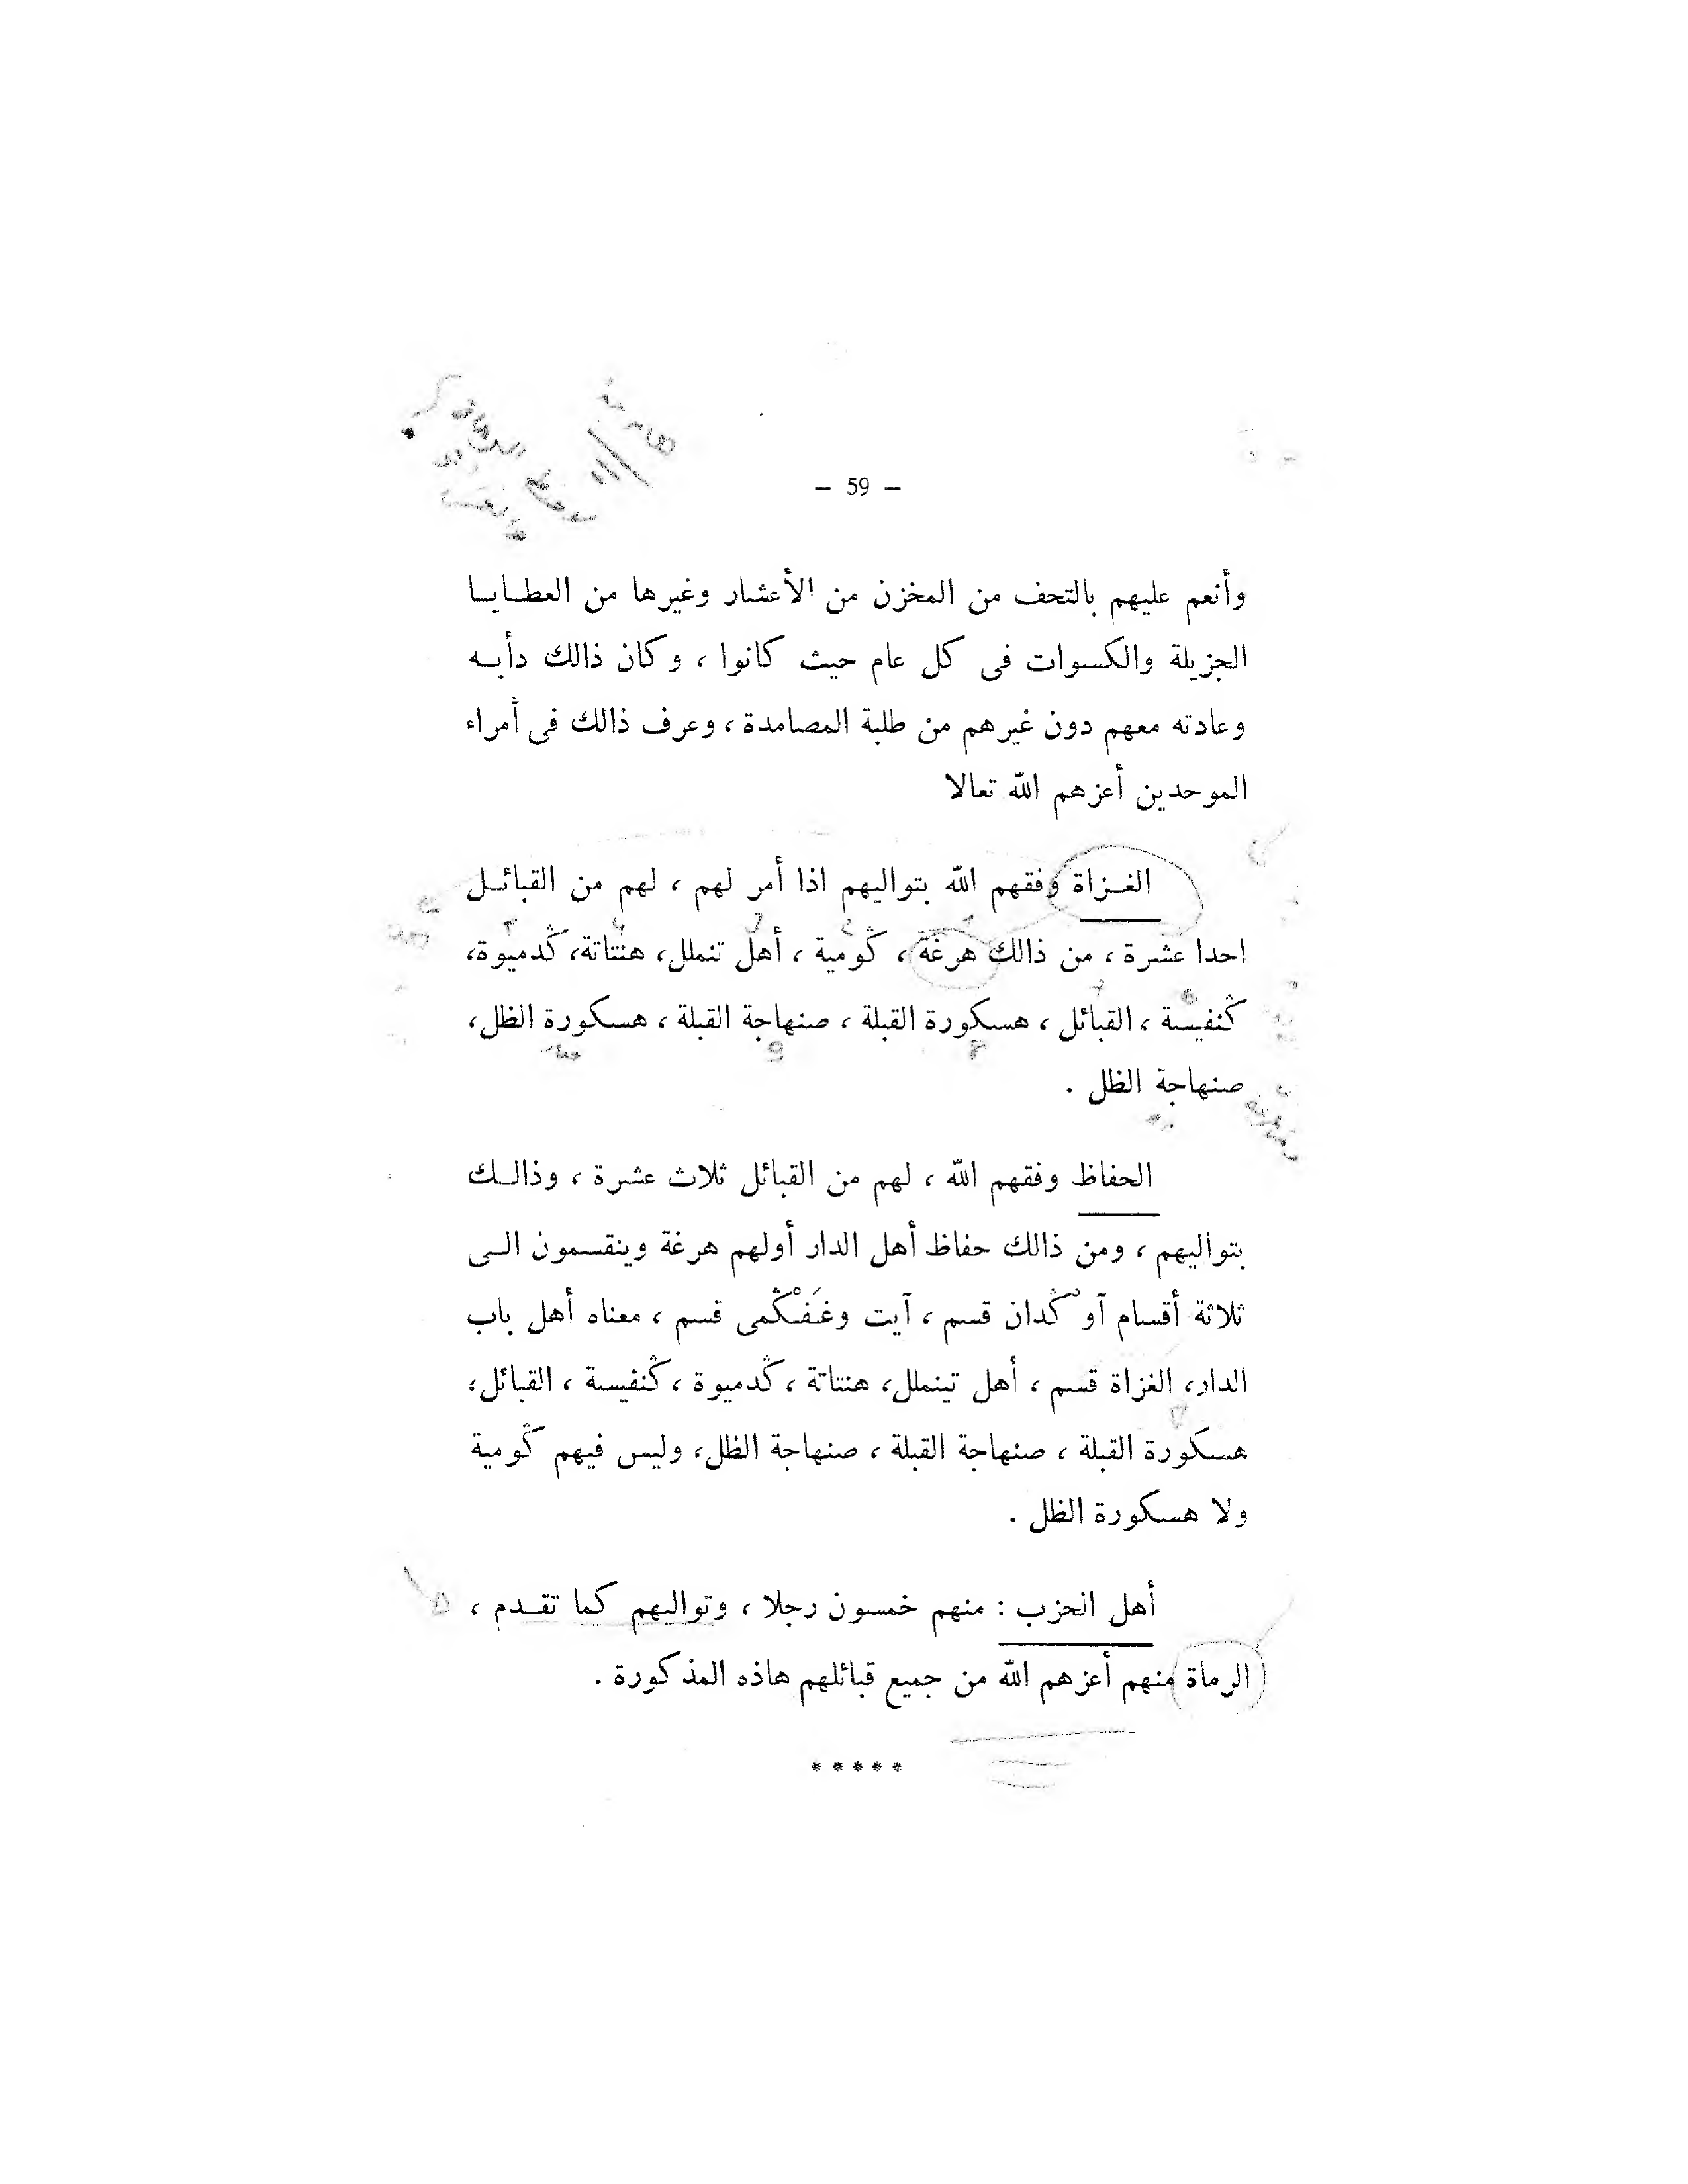 — 59 —
وأنعم عليهم بالتحف من المخزن من الأعشار وغيرها من العطــايــا
الجزيلة والكسوات فى كل عام حيث كانوا ، وكان ذالك دأبــه
وعادته معهم دون غيرهم من طلبة المصامدة ، وعرف ذالك فى أمراء
الموحدين أعزهم الله تعالا
الغــزاة وفقهم الله بتواليهم اذا أمر لهم ، لهم من القبائــل
احدا عشرة ، من ذالك هرغة ، ڭومية ، أهل تنملل، هنتاتة، ڭدميوة،
ڭنفيسة ، القبائل ، هسكورة القبلة ، صنهاجة القبلة ، هسكورة الظل،
صنهاجة الظل .
الحفاظ وفقهم الله ، لهم من القبائل ثلاث عشرة ، وذالــك
بتواليهم ، ومن ذالك حفاظ أهل الدار أولهم هرغة وينقسمون الــى
ثلاثة أقسام آو ڭُدان قسم ، آيت وغَفْڭْمى قسم ، معناه أهل باب
الدار، الغزاة قسم ، أهل تينملل، هنتاتة ، ڭدميوة ، ڭنفيسة ، القبائل،
هسكورة القبلة ، صنهاجة القبلة ، صنهاجة الظل، وليس فيهم ڭومية
ولا هسكورة الظل .
أهل الحزب : منهم خمسون رجلا ، وتواليهم كما تقــدم ،
الرماة منهم أعزهم الله من جميع قبائلهم هاذه المذكورة .
*****